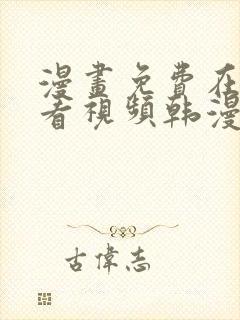 漫畫免費在
看視頻韩漫
古偉志